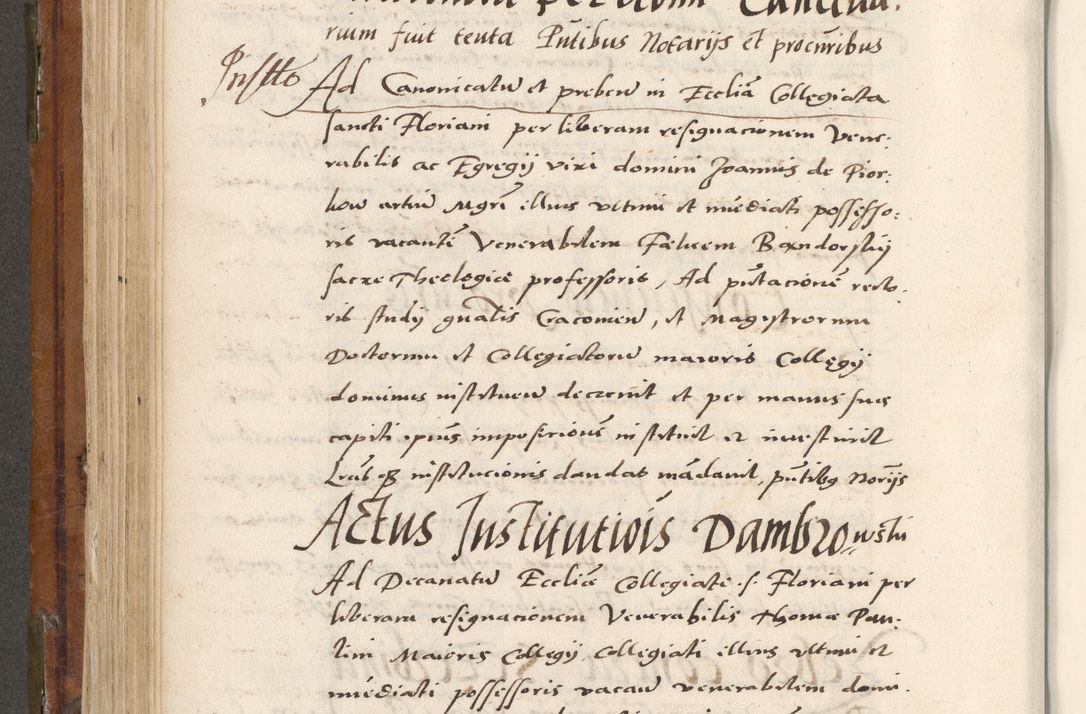 rium fuit tenta Pntibus Notarijs et procuribus
Instto Ad Canonicatu et preben in Ecclia Collegiata
sancti Floriani per liberam resignacionem Vene:
rabilis ac Egregij viri domini Joannis de Pior:
kow artiu Mgri illius ultimi et mediati possesso:
ris vacante Venerabilem Felicem Bendorskij
sacre Theologie professoris, Ad pntacione recto:
ris studij gnalis Cracovien, et Magistrorum
Doctorum et Collegiatoru maioris Collegij
dominus instituen decrevit et per manus sue
capiti ipius imposicione instituit et investivit
Lras q3 institucionis dandas madavit, pntibus Norijs
Actus Institutiois Dambrowski
Ad Decanatu Ecclie Collegiate S. Floriani per
liberam resignacionem Venerabilis Thome Pau:
lini Maioris Collegij Collegiati illius ultimi et
mediati possessoris vacan venerabilem domi: